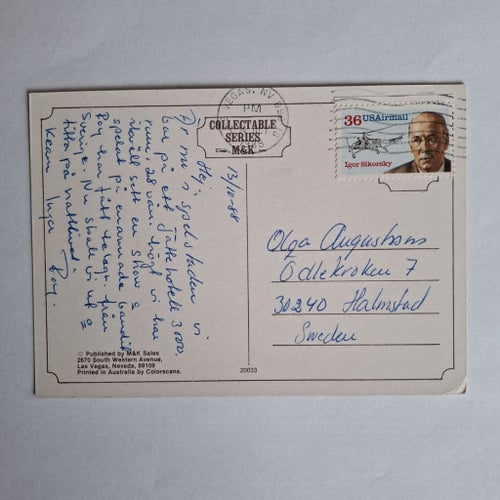 VEGAS, NV
PM
COLLECTABLE
SERIES
M&K
36 USAirmail
Igor Sikorsky
13/10-88
Hej.
Är nu i spelstaden vi
bor på ett jättehotell 3000
rum, 28 vån. högt vi har
ikväll sett en show o
spelat på enarmade bandit
Roy har fått telegr. från
Sverige. Nu skall vi ut o
titta på nattlivet.
Kram Inger Roy.
Olga Augustsons
Odlekroken 7
30240 Halmstad
Sweden
© Published by M&K Sales
2670 South Western Avenue,
Las Vegas, Nevada, 89109
Printed in Australia by Colorscans.
20033